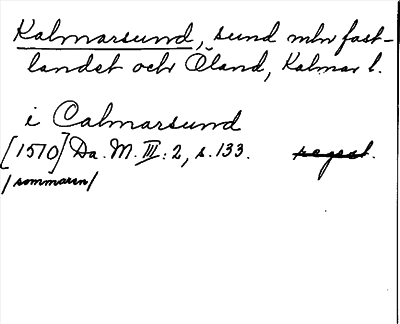 Kalmarsund, sund mln fast-
landet och Öland, Kalmar l.
i Calmarsund
[1570] Da. M. III: 2, s. 133. regest.
/sommaren/